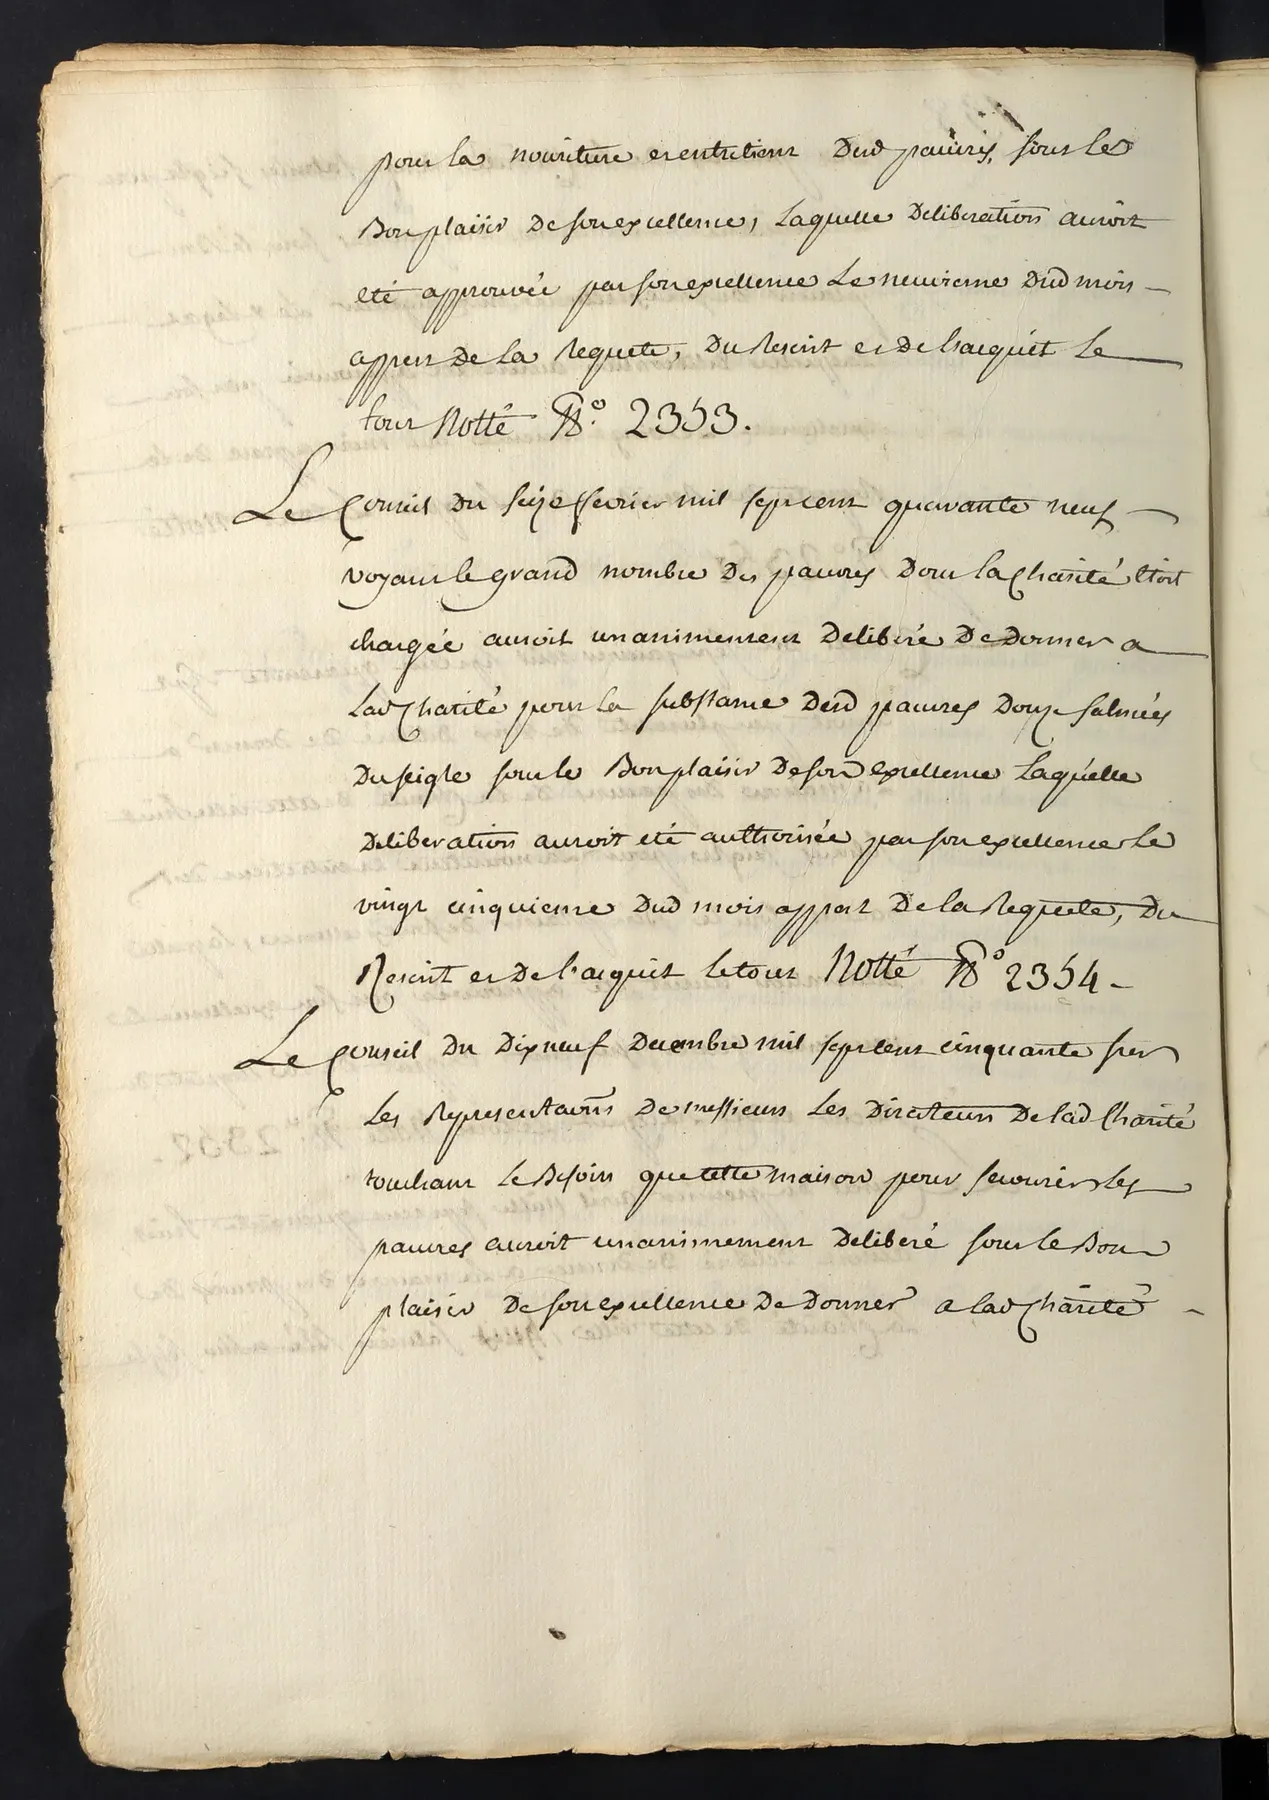 pour la nouriture et entretient Dud pauvres, sous le
Bon plaisir De son excellence, Laquelle Deliberation auroit
eté approuvée par son excellence Le neuvieme Dud mois
appert De La Requete, Du Rescrit et De l'acquit Le
tout Notté N.º 2353.
Le Conseil Du seize fevrier mil sept cent quarante neuf
voyant le grand nombre Des pauvres Dont la Charité étoit
chargée auroit unanimement Deliberé De Donner a
Lad Charité pour la substance Desd pauvres Douze salmées
Du seigle sous le Bon plaisir De son excellence Laquelle
Deliberation auroit eté authorisée par son excellence Le
vingt cinquieme Dud mois appert De la Requete, Du
Rescrit et De l'acquit le tout Notté Nº 2354
Le Conseil Du Dix neuf Decembre mil sept cent cinquante sur
Les Representaõns De messieurs Les Directeurs De Lad Charité
touchant Le Besoin que cette maison pour secourir les
pauvres auroit unanimement Deliberé sous le Bon
plaisir De son excellence De Donner a Lad Charité